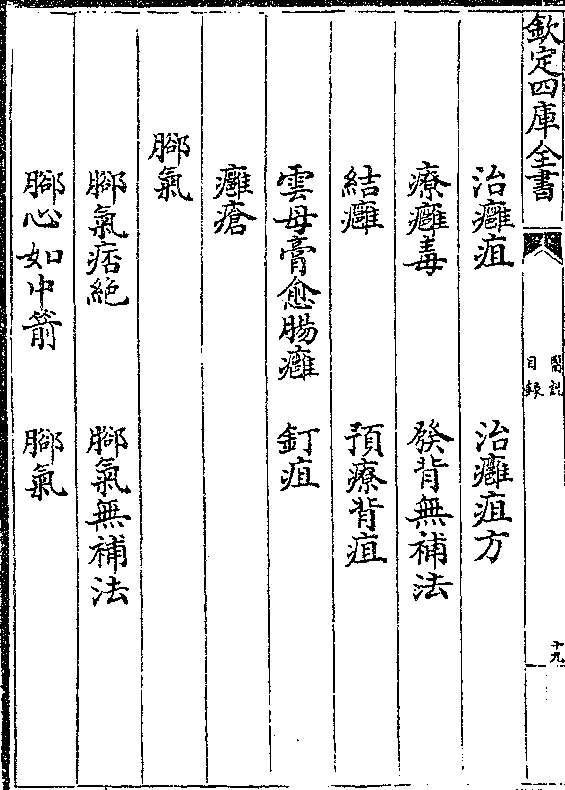 欽定四庫全書
醫說
目錄
十九
治癰疽 治癰疽方
療癰毒 發背無補法
結癰 預療背疽
雲母膏愈腸癰 釘疽
癰瘡
腳氣
腳氣痞絕 腳氣無補法
腳心如中箭 腳氣